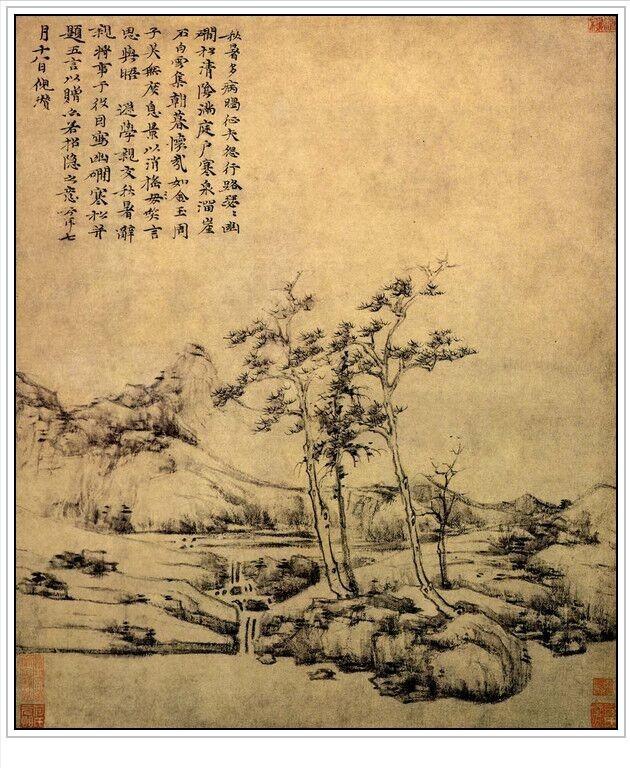 秋暑多病暍征夫怨行路瑟瑟幽
澗松清陰滿庭戶寒泉溜崖
石白雲集朝暮懷哉如金玉周
子美無度息景以消搖笑言
思與晤 遜學親友秋暑辭
親將事于役因寫幽澗寒松并
題五言以贈亦若招隱之意七
月十八日倪瓚